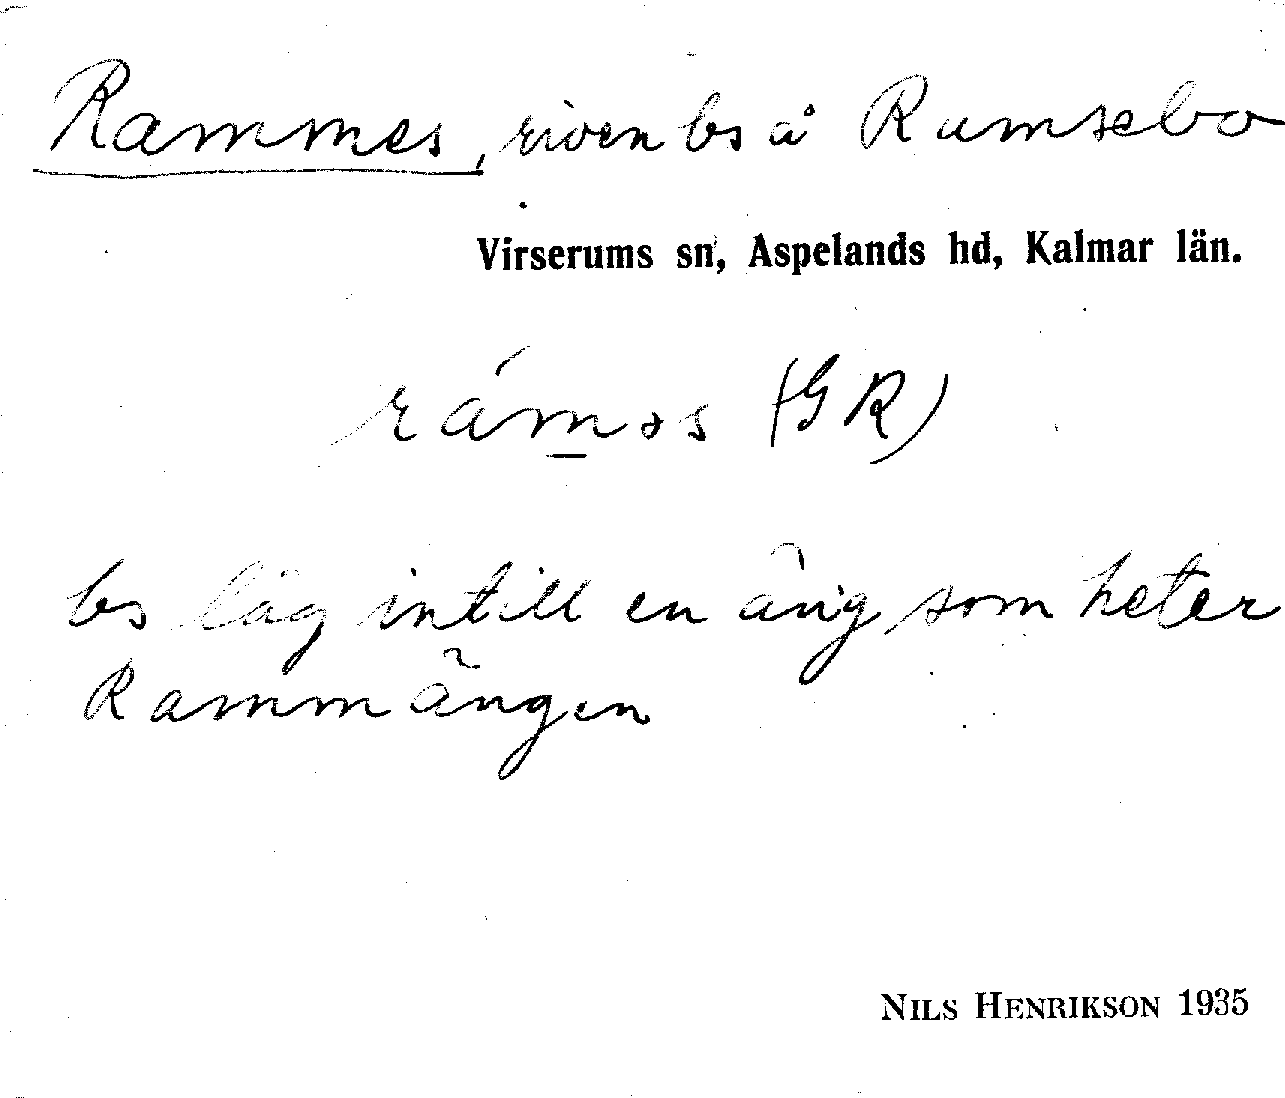 Rammes, riven bs å Rumsebo
Virserums sn, Aspelands hd, Kalmar län.
rám̲əs (GR)
bs låg intill en äng som heter
Rammängen
NILS HENRIKSON 1935